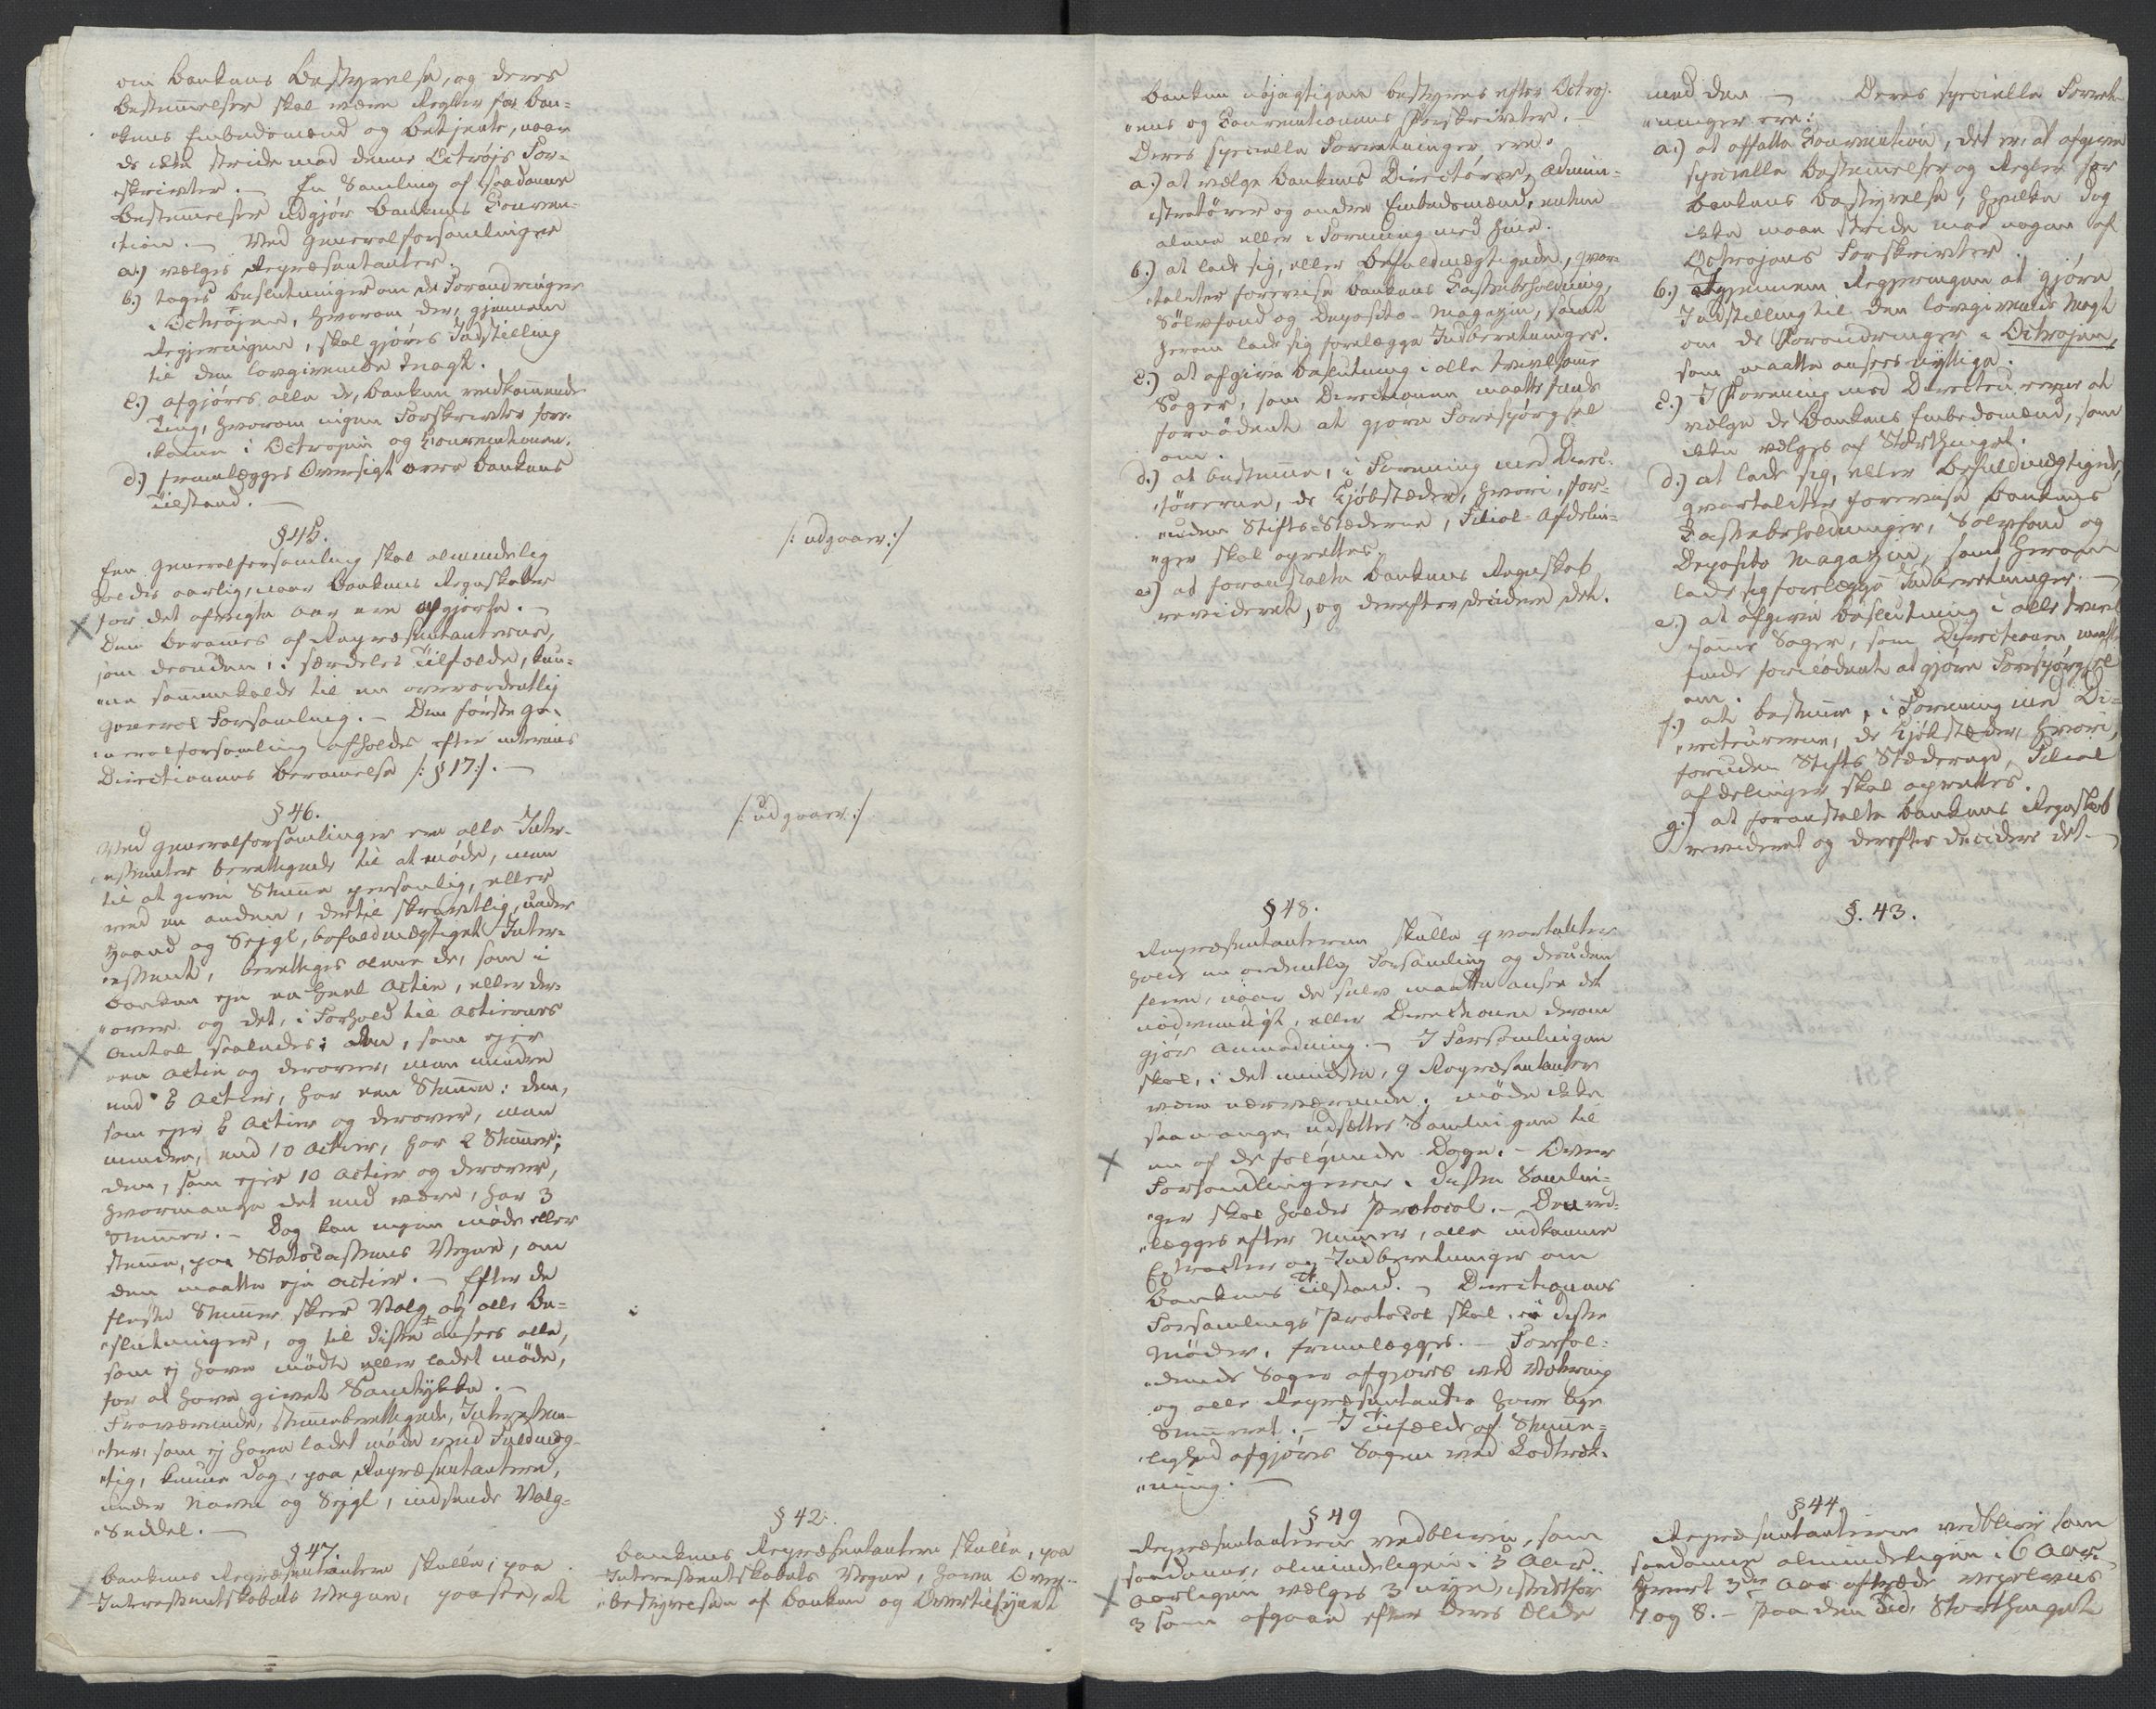 om Bankens Bestyrelse, og deres
Bestemmelser skal være Regler for Ban-
"kens Embedsmænd og Betjente, naar
de ikke stride mod denne Octrojs For-
"skrivter. — En Samling af saadanne
Bestemmelser udgjør Bankens Conven-
"tion. — Ved Generalforsamlinger
a.) vælges Repræsentanter.
b.) tages Beslutninger om de Forandringer
i Octrojen, hvorom der, gjennem
Regjeringen, skal gjøres Indstilling
til den lovgivende Magt.
c.) afgjøres alle de, Banken vedkommende
Ting, hvorom ingen Forskrivter fore-
"komme i Octrojen og Conventionen.
d.) fremlægges Oversigt over Bankens
Tilstand. —
§ 45.
Een Generalforsamling skal almindelig
holdes aarlig, naar Bankens Regnskaber
for det afvigte Aar ere afgjorte. —
Den berammes af Repræsentanterne,
som desuden, i særdeles Tilfælde, kun-
"ne sammenkalde til en overordentlig
General Forsamling. — Den første Ge-
"neralforsamling afholdes efter interims
Directionens Berammelse /: § 17 :/. —
§ 46.
Ved Generalforsamlinger ere alle Inter-
"essenter berettigede til at møde, men
til at give Stemme personlig, eller
ved en anden, dertil skrivtlig, under
Haand og Segl, befuldmægtiget Inter-
"essent, berettiges alene de, som i
Banken eje en heel Actie, eller der-
"over og det, i Forhold til Actiernes
Antal saaledes: den, som ejer
een Actie og derover, men mindre
end 5 Actier, har een Stemme: den,
som ejer 5 Actier og derover, men
mindre, end 10 Actier, har 2 Stemmer;
den, som ejer 10 Actier og derover,
hvormange det end være, har 3
Stemmer. — Dog kan ingen møde eller
stemme, paa Statscassens Vegne, om
den maatte eje Actier. — Efter de
fleste Stemmer skeer Valg og alle Be-
"slutninger, og til disse ansees alle,
som ej have mødt eller ladet møde,
for at have givet Samtykke. —
Fraværende, stemmeberettigede, Interessen-
"ter, som ej have ladet møde ved Fuldmæg-
"tig, kunne dog, paa Repræsentantere,
under Navn og Segl, indsende Valg-
"Seddel. —
§ 47.
Bankens Repræsentantere skulle, paa
Interessentskabets Vegne, paasee, at
/: udgaaer :/
/: udgaaer :/
§ 42.
Bankens Repræsentantere skulle, paa
Interessentskabets Vegne, have Over-
"bestyrelsen af Banken og Overtilsynet
Banken nøjagtigen bestyres efter Octroj-
"ens og Conventionens Forskrivter. —
Deres specielle Forretninger ere:
a.) at vælge Bankens Directører, Admini-
"stratører og andre Embedsmænd, enten
alene eller i Forening med hine.
b.) at lade sig, eller Befuldmægtigede, qvar-
"taliter forevise Bankens Cassebeholdning,
Sølvfond og Deposito-Magazin, samt
herom lade sig forelægge Indberetninger.
c.) at afgive Beslutning i alle tvivlsomme
Sager, som Directionen maatte finde
fornødent at gjøre Forespørgsel
om.
d.) at bestemme, i Forening med Direc-
"tørerne, de Kjøbstæder, hvori, for-
"uden Stifts-Stæderne, Filial-Afdelin-
"ger skal oprettes.
e.) at foranstalte Bankens Regnskab
revideret, og derefter decidere det.
§ 48.
Repræsentanterne skulle qvartaliter
holde en ordentlig Forsamling og desuden
flere, naar de selv maatte ansee det
nødvendigt, eller Directionen derom
gjør Anmodning. — I Forsamlingen
skal, i det mindste, 9 Repræsentanter
være nærværende; møde ikke
saamange, udsættes Samlingen til
en af de følgende Dage. — Over
Forhandlingerne i disse Samlin-
"ger skal holdes Protocol. — Den ved-
"lægges efter Numer, alle indkomne
Extracter og Indberetninger om
Bankens Tilstand. — Directionens
Forsamlings Protocol skal, i disse
Møder, fremlægges. — Forefal-
"dende Sager afgjøres ved Votering
og alle Repræsentanter have lige
Stemmeret. — I Tilfælde af Stemme-
"lighed afgjøres Sagen ved Lodtræk-
"ning. —
§ 49
Repræsentanterne vedblive, som
saadanne, almindeligen i 5 Aar.
Aarligen vælges 3 nye, istedetfor
3 som afgaae efter deres Ælde
med den — Deres specielle Forret-
"ninger ere:
a.) at affatte Convention, det er: at afgive
specielle Bestemmelser og Regler for
Bankens Bestyrelse, hvilke dog
ikke maae stride mod nogen af
Octrojens Forskrivter.
b.) Igjennem Regjeringen at gjøre
Indstilling til den lovgivende Magt
om de Forandringer i Octrojen,
som maatte ansees nyttige.
c.) I Forening med Directeurerne at
vælge de Bankens Embedsmænd, som
ikke vælges af Storthinget.
d.) at lade sig, eller Befuldmægtigede,
qvartaliter forevise Bankens
Cassebeholdninger, Sølvfond og
Deposito Magazin, samt herom
lade sig forelægge Indberetninger. —
e.) at afgive Beslutning i alle tvivl-
"somme Sager, som Directionen maatte
finde fornødent at gjøre Forespørgsel
om.
f.) at bestemme, i Forening med Di-
"recteurerne, de Kjøbstæder, hvori,
foruden Stifts Stæderne, Filial
afdelinger skal oprettes.
g.) at foranstalte Bankens Regnskab
revideret og derefter decidere det —
§. 43.
§ 44
Repræsentanterne vedblive som
saadanne almindeligen i 6 Aar.
Hvert 3die Aar aftræde vexelviis
7 og 8. — Paa den Tid, Storthinget